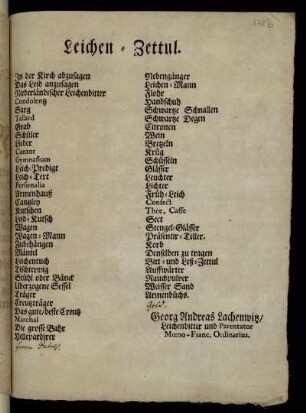 138b
Leichen-Zettul.
In der Kirch abzusagen
Das Leid anzusagen
Niederländischer Leichenbitter
Condolentz
Sarg
Tallard
Grab
Schüler
Lieder
Cantor
Gymnasium
Leich-Predigt
Leich-Text
Personalia
Armenhauß
Cantzley
Kutschen
Leid-Kutsch
Wagen
Wagen-Mann
Mäntel
Leichentuch
Stühl oder Bänck
Uberzogene Sessel
Träger
Creutzträger
Das gute/beste Creutz
Marchal
Die grosse Bahr
Nebengänger
Leichen-Mann
Flohr
Handschuh
Schwartze Schnallen
Schwartze Degen
Citronen
Wein
Bretzeln
Krüg
Schüsseln
Gläser
Leuchter
Lichter
Früh-Leich
Confect
Thee, Caffe
Sect
Stengel-Gläser
Präsentir-Teller.
Korb
Denselben zu tragen
Bitt- und Leß-Zettul
Auffwärter
Rauchpulver
Weisser Sand
Armenbüchs.
Georg Andreas Lachenwitz/
Leichenbitter und Parentator
Mœno-Franc. Ordinarius.